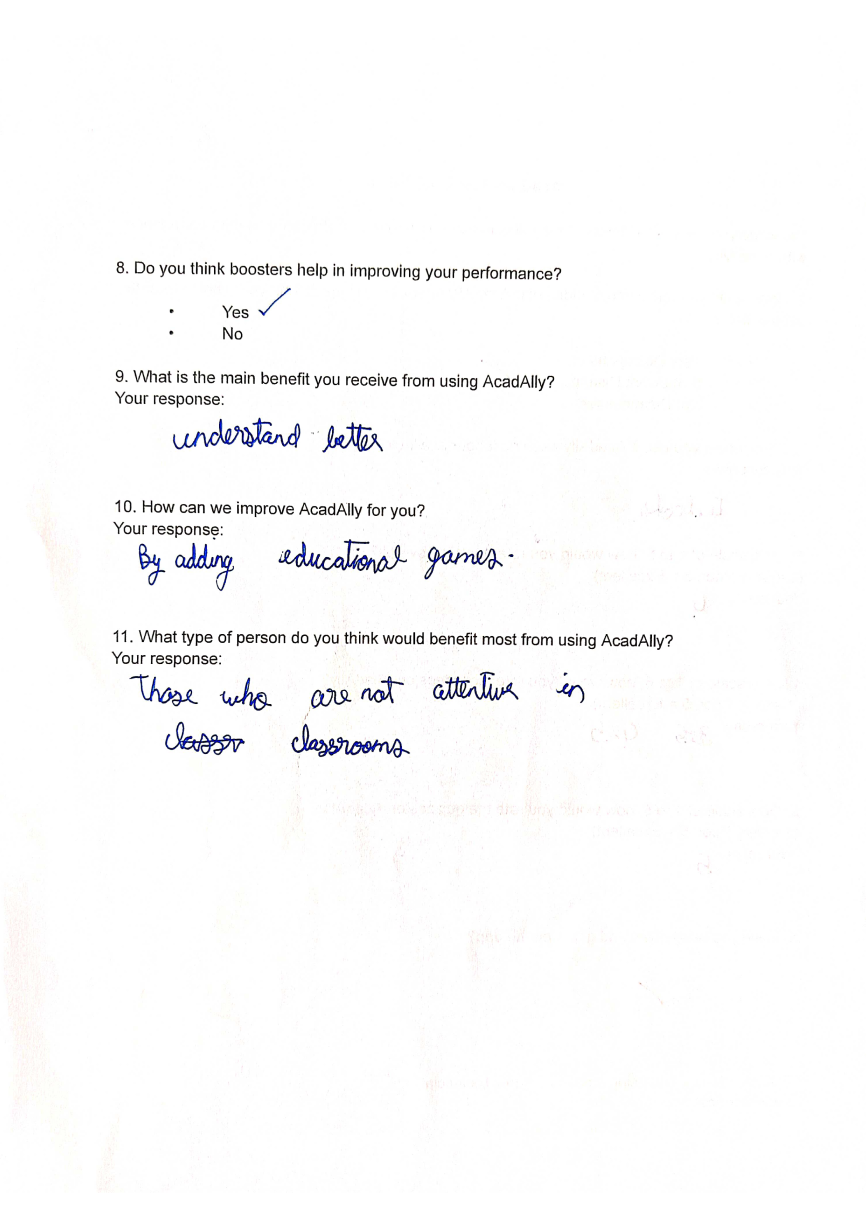 8. Do you think boosters help in improving your performance?
• Yes ✓
• No
9. What is the main benefit you receive from using AcadAlly?
Your response:
understand better
10. How can we improve AcadAlly for you?
Your response:
By adding educational games.
11. What type of person do you think would benefit most from using AcadAlly?
Your response:
Those who are not attentive in
classrooms